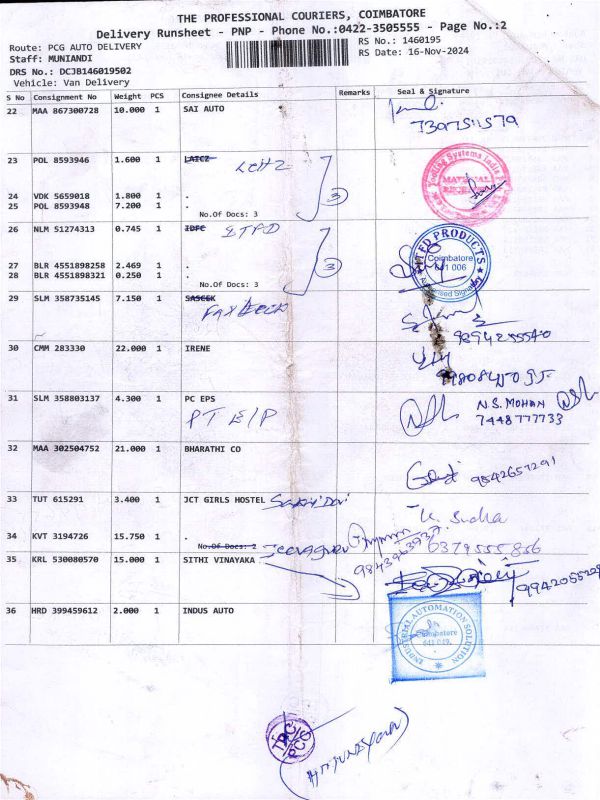 THE PROFESSIONAL COURIERS, COIMBATORE
Delivery Runsheet - PNP - Phone No.:0422-3505555 - Page No.:2
Route: PCG AUTO DELIVERY
RS No.: 1460195
Staff: MUNIANDI
RS Date: 16-Nov-2024
DRS No.: DCJB146019502
Vehicle: Van Delivery
S No Consignment No Weight PCS Consignee Details Remarks Seal & Signature
22 MAA 867300728 10.000 1 SAI AUTO
7397511579
23 POL 8593946 1.600 1
MATERIAL
24 VDK 5659018 1.800 1 .
25 POL 8593948 7.200 1 .
3
No.Of Docs: 3
26 NLM 51274313 0.745 1 IDFC
27 BLR 4551898258 2.469 1 .
28 BLR 4551898321 0.250 1 .
3
No.Of Docs: 3
PRODUCTS
Coimbatore
641 006
Authorised Signatory
29 SLM 358735145 7.150 1
9894255540
30 CMM 283330 22.000 1 IRENE
31 SLM 358803137 4.300 1 PC EPS
PT E/P
N.S. MOHAN
7448777733
32 MAA 302504752 21.000 1 BHARATHI CO
9842657291
33 TUT 615291 3.400 1 JCT GIRLS HOSTEL
K. Sudha
34 KVT 3194726 15.750 1 .
No.Of Docs: 2
9843963937
0379555856
35 KRL 530080570 15.000 1 SITHI VINAYAKA
36 HRD 399459612 2.000 1 INDUS AUTO
INDUSTRIAL AUTOMATION SOLUTION
Coimbatore
PCG